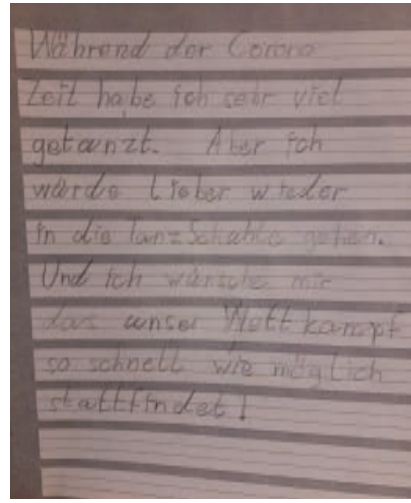 Während der Corona
Zeit habe ich sehr viel
getanzt. Aber ich
würde lieber wieder
in die TanzSchule gehen.
Und ich wünsche mir
das unser Wettkampf
so schnell wie möglich
stattfindet!